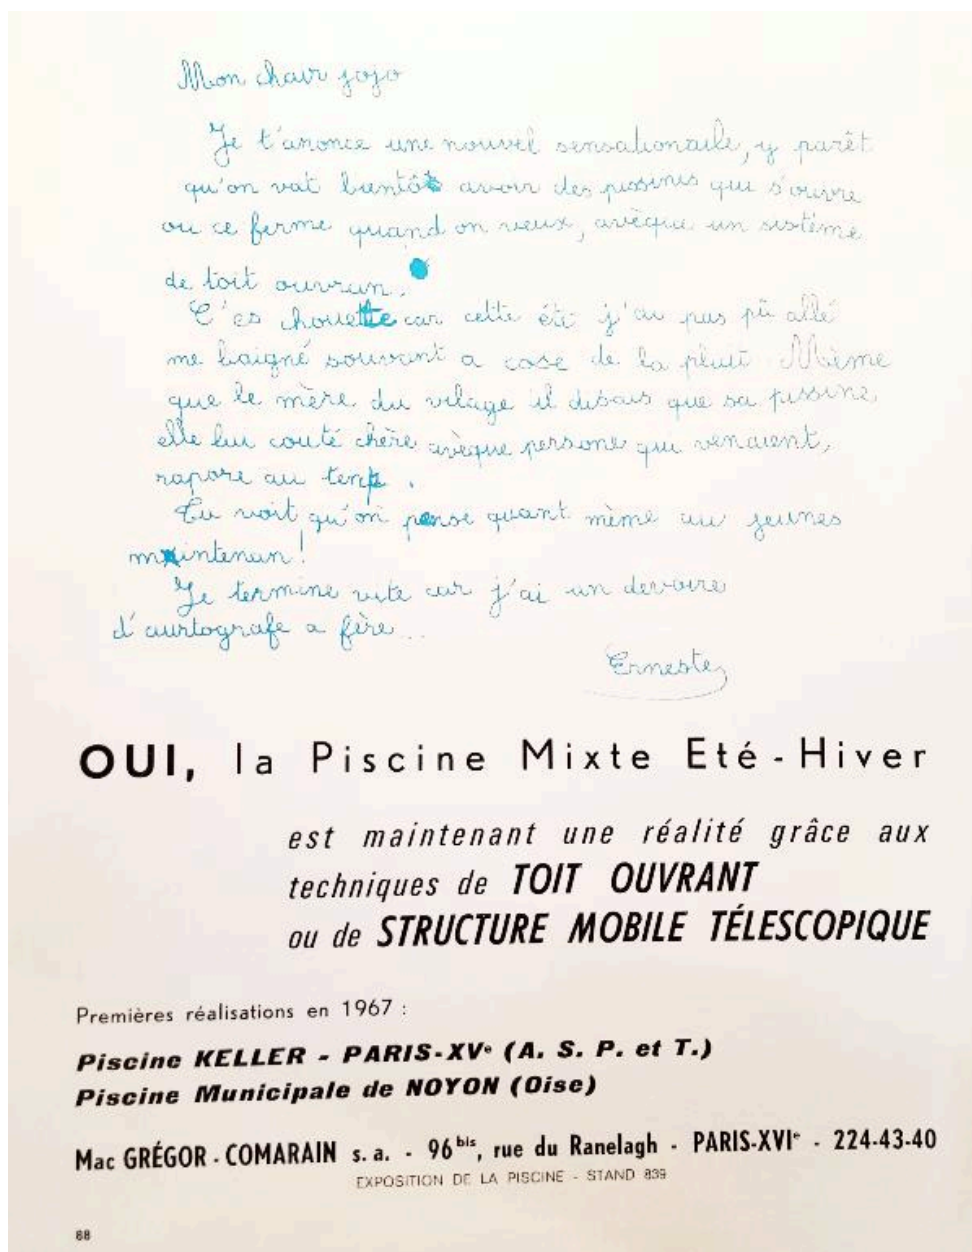 Mon chair jojo
Je t'anonce une nouvel sensationaile, y parêt
qu'on vat bientôt avoir des pissines qui s'ouvre
ou ce ferme quand on veux, avèque un sistème
de toit ouvran.
C'es chouette car cette été j'ai pas pû allé
me baigné souvant a cose de la pluit. Mème
que le mère du vilage il disais que sa pissine,
elle lui couté chère avèque persone qui venaient,
rapore au temp.
Tu voit qu'on pense quant mème au jeunes
maintenan!
Je termine vite car j'ai un devoire
d'aurtografe a fère...
Erneste
OUI, la Piscine Mixte Eté - Hiver
est maintenant une réalité grâce aux
techniques de TOIT OUVRANT
ou de STRUCTURE MOBILE TÉLESCOPIQUE
Premières réalisations en 1967 :
Piscine KELLER - PARIS-XVe (A. S. P. et T.)
Piscine Municipale de NOYON (Oise)
Mac GRÉGOR - COMARAIN s. a. - 96 bis, rue du Ranelagh - PARIS-XVIe - 224-43-40
EXPOSITION DE LA PISCINE - STAND 839
88